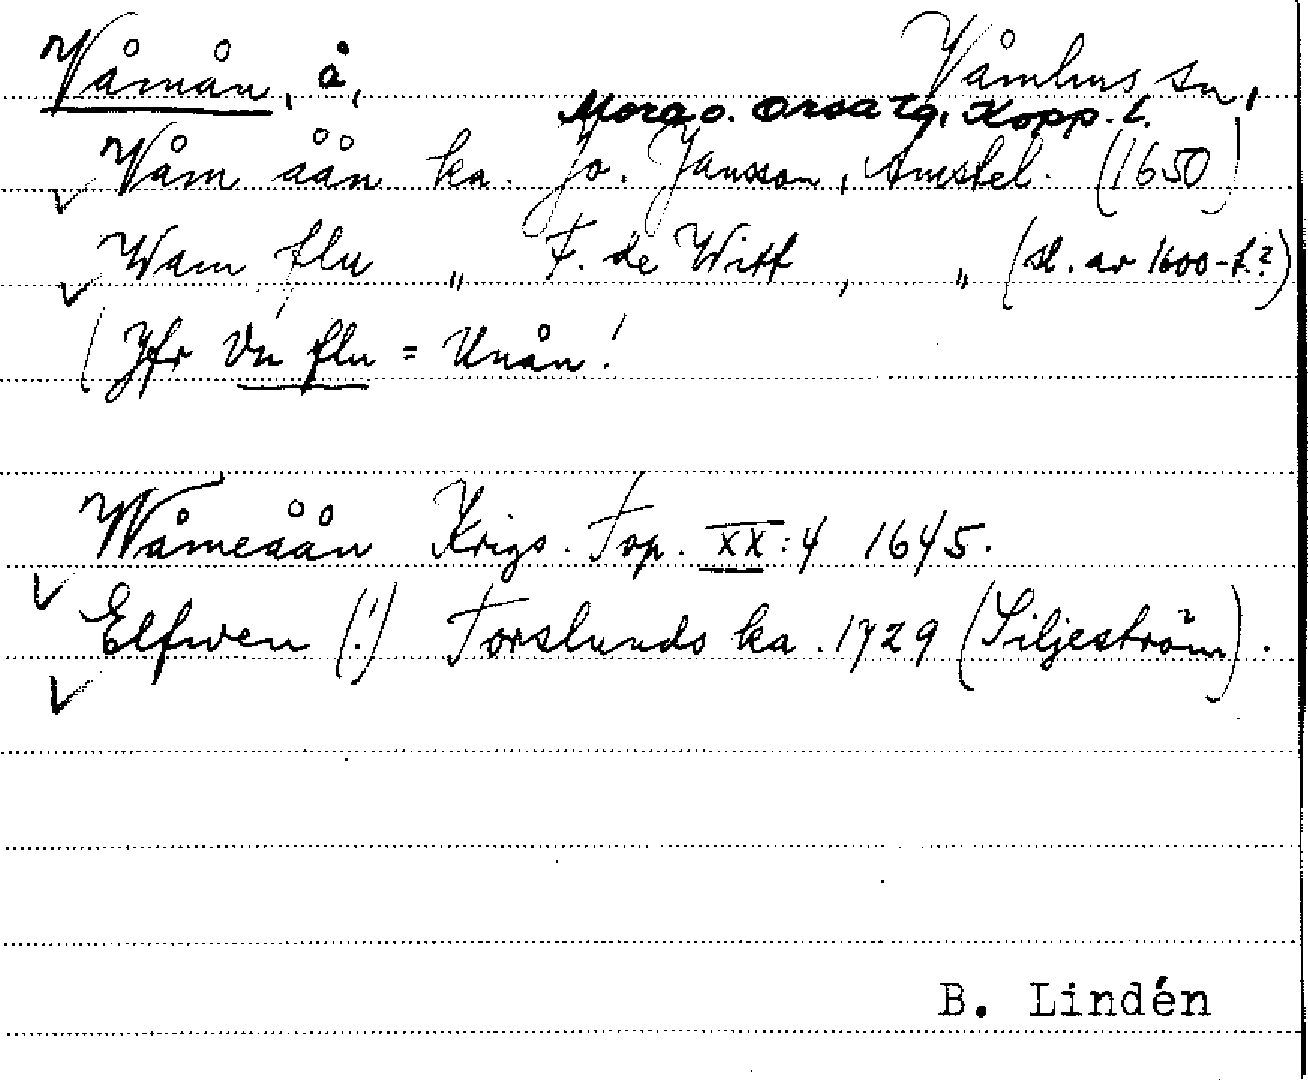 Våmån, å, Våmhus sn,
Mora o. Orsa tg, Kopp. l.
Våm åån ka. Jo. Jansson, Amstel. (1650)
Wam flu „ F. de Witt , „ (sl. av 1600-t.?)
(Jfr Vn flu = Unån!
Wåmeåån Krigs. Top. XX:4 1645.
Elfwen (!) Forslunds ka. 1729 (Siljeström).
B. Lindén